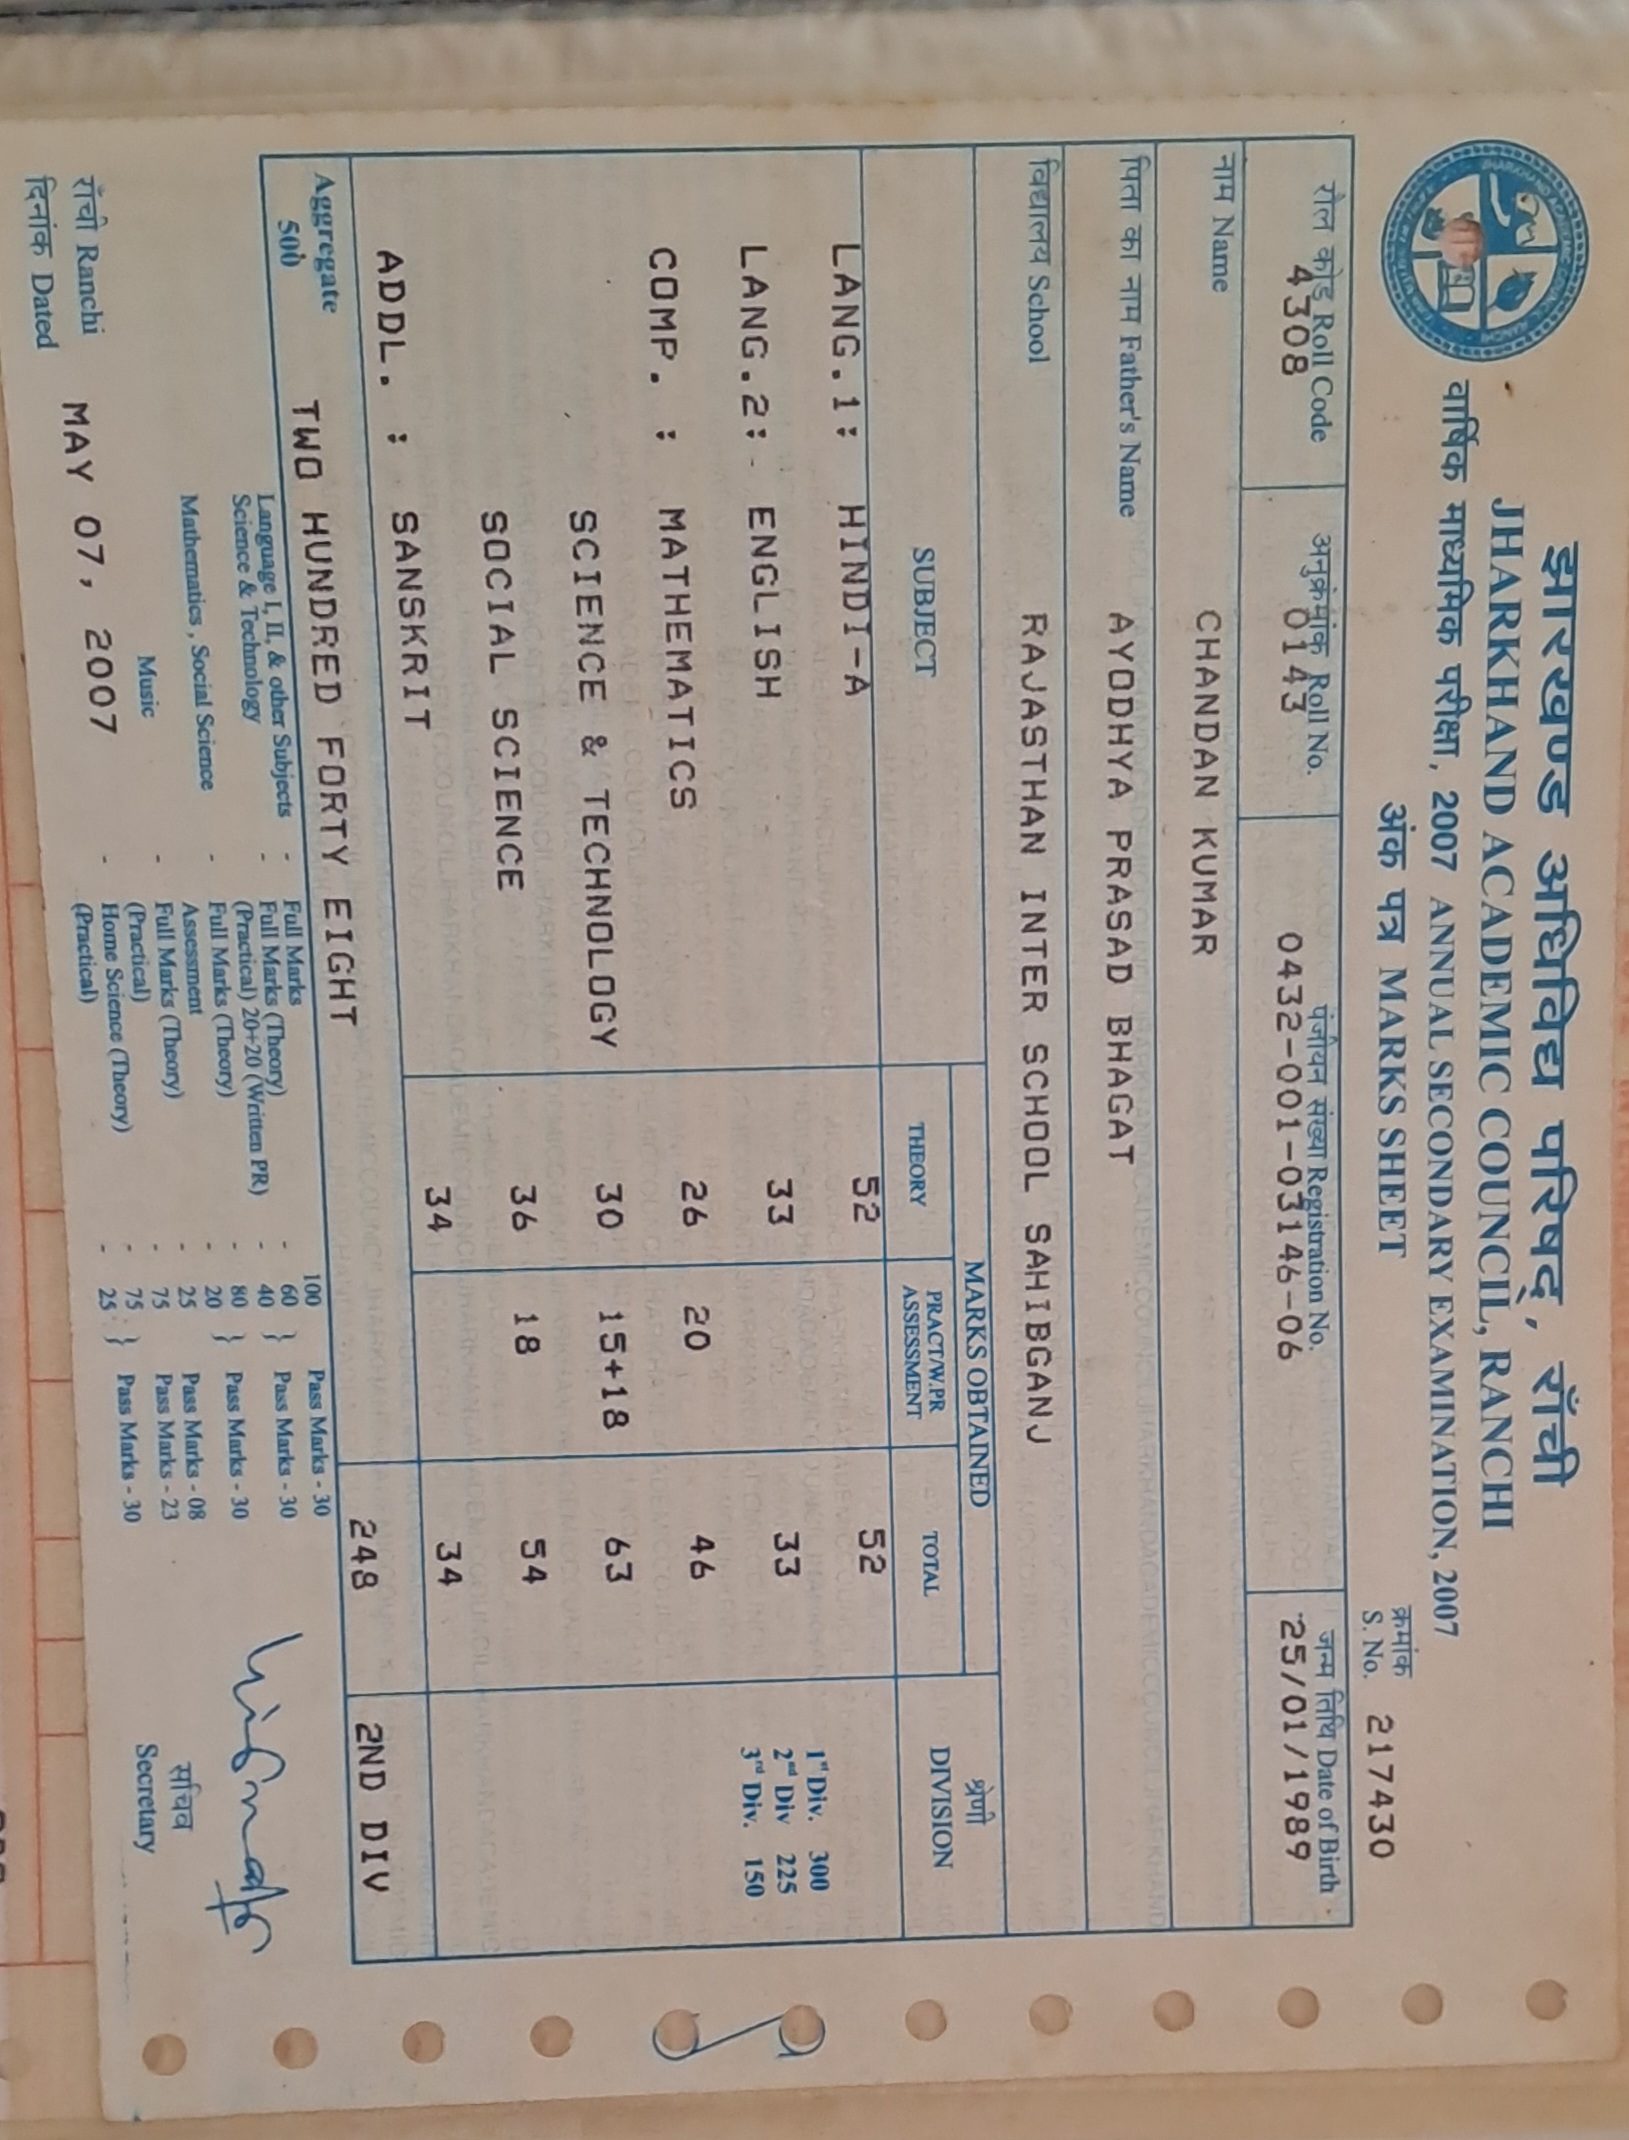 झारखण्ड अधिविद्य परिषद्, राँची
JHARKHAND ACADEMIC COUNCIL, RANCHI
वार्षिक माध्यमिक परीक्षा, 2007 ANNUAL SECONDARY EXAMINATION, 2007
अंक पत्र MARKS SHEET
क्रमांक
S. No. 217430
रौल कोड Roll Code अनुक्रमांक Roll No. पंजीयन संख्या Registration No. जन्म तिथि Date of Birth
4308 0143 0432-001-03146-06 25/01/1989
नाम Name CHANDAN KUMAR
पिता का नाम Father's Name AYODHYA PRASAD BHAGAT
विद्यालय School RAJASTHAN INTER SCHOOL SAHIBGANJ
SUBJECT MARKS OBTAINED श्रेणी DIVISION
THEORY PRACT/W.PR ASSESSMENT TOTAL
LANG.1: HINDI-A 52 52
1st Div. 300
LANG.2: ENGLISH 33 33
2nd Div 225
3rd Div. 150
COMP. : MATHEMATICS 26 20 46
SCIENCE & TECHNOLOGY 30 15+18 63
SOCIAL SCIENCE 36 18 54
ADDL. : SANSKRIT 34 34
Aggregate 500 TWO HUNDRED FORTY EIGHT 248 2ND DIV
Language I, II, & other Subjects - Full Marks - 100 Pass Marks - 30
Science & Technology - Full Marks (Theory) - 60 } Pass Marks - 30
(Practical) 20+20 (Written PR) - 40
Mathematics, Social Science - Full Marks (Theory) - 80 } Pass Marks - 30
Assessment - 20
Music - Full Marks (Theory) - 25 Pass Marks - 08
(Practical) - 75 Pass Marks - 23
- Home Science (Theory) - 75 } Pass Marks - 30
(Practical) - 25
राँची Ranchi
दिनांक Dated MAY 07, 2007
सचिव
Secretary